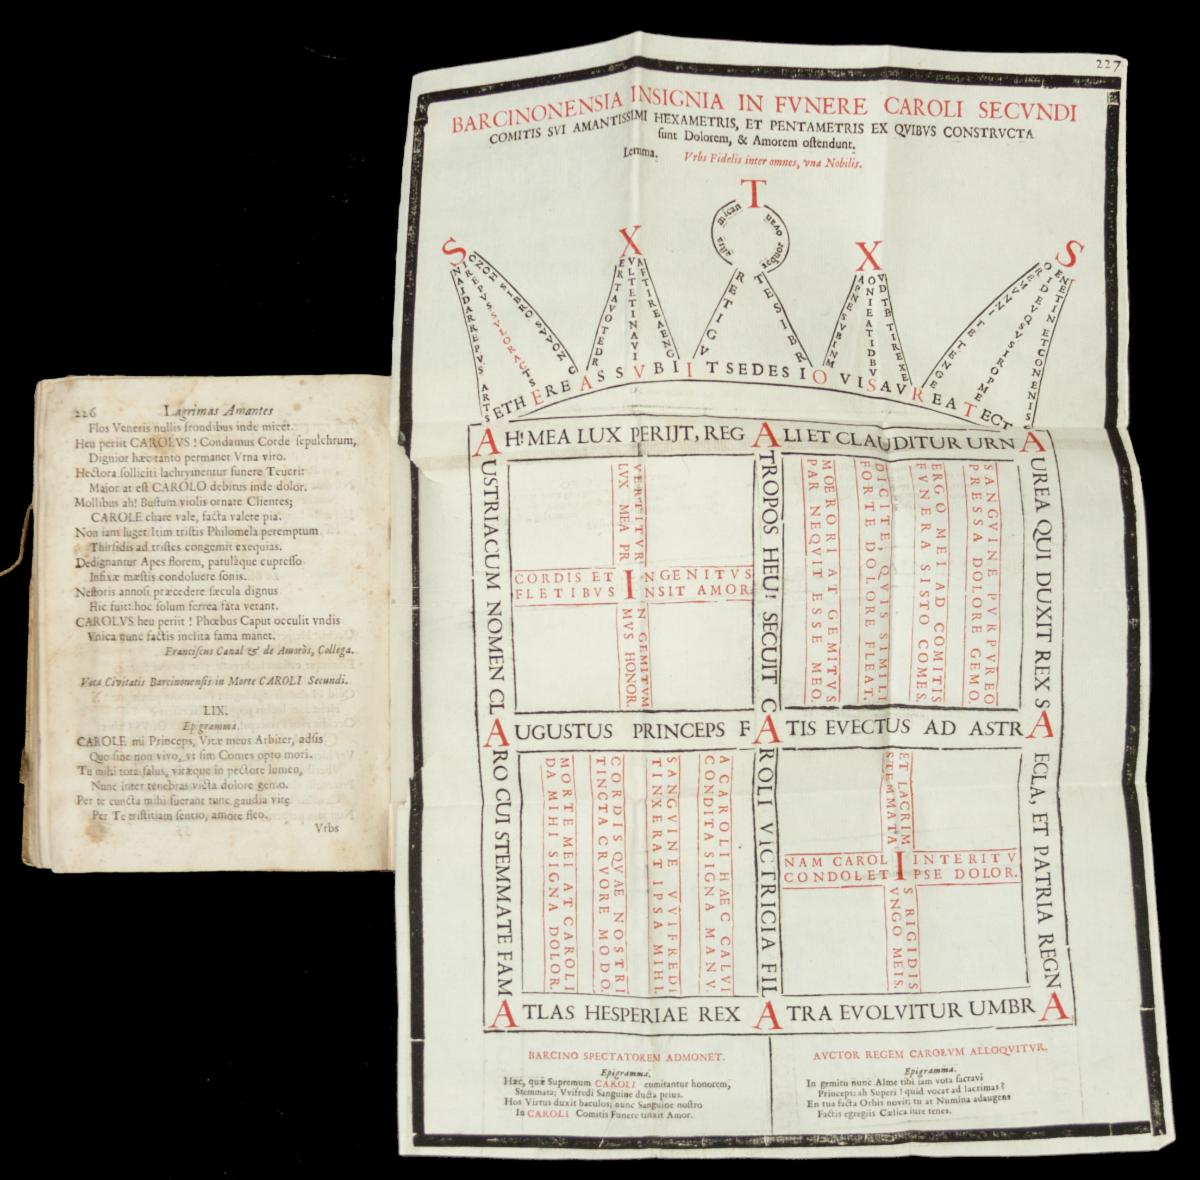 226 Lagrimas Amantes
Flos Veneris nullis frondibus inde micet.
Heu periit CAROLVS! Condamus Corde sepulchrum,
Dignior hæc tanto permanet Vrna viro.
Hectora solliciti lachrymentur funere Teucri:
Maior at est CAROLO debitus inde dolor.
Mollibus ah! Bustum violis ornate Clientes;
CAROLE chare vale, facta valete pia.
Non iam luget Itim tristis Philomela peremptum
Thirsidis ad tristes congemit exequias.
Dedignantur Apes florem, patulàque cupresso
Infixæ mæstis condoluere sonis.
Nestoris annosi præcedere sæcula dignus
Hic fuit: hoc solum ferrea fata vetant.
CAROLVS heu periit! Phœbus Caput occulit vndis
Vnica nunc factis inclita fama manet.
Franciscus Canal & de Amoròs, Collega.
Vota Civitatis Barcinonensis in Morte CAROLI Secundi.
LIX.
Epigramma.
CAROLE mi Princeps, Vitæ meus Arbiter, adsis
Quo sine non vivo, vt sim Comes opto mori.
Tu mihi tota salus, vitæque in pectore lumen,
Nunc inter tenebras victa dolore gemo.
Per te cuncta mihi fuerant tunc gaudia vitę
Per Te tristitiam sentio, amore sico.
Vrbs
227
BARCINONENSIA INSIGNIA IN FVNERE CAROLI SECVNDI
COMITIS SVI AMANTISSIMI HEXAMETRIS, ET PENTAMETRIS EX QVIBVS CONSTRVCTA
sunt Dolorem, & Amorem ostendunt.
Lemma. Vrbs Fidelis inter omnes, vna Nobilis.
S X T X S
SETHEREASSVBIITSEDESIOVISAVREATECT
AH! MEA LUX PERIJT, REGALI ET CLAUDITUR URNA
AUSTRIACUM NOMEN CL
ATROPOS HEU! SECUIT C
AUREA QUI DUXIT REX S
VERTITVR
LVX MEA PR
CORDIS ET INGENITVS
FLETIBVS INSIT AMOR
IN GEMITVM
MVS HONOR.
MOERORI AT GEMITVS
PAR NEQVIT ESSE MEO.
DICITE, QVIS SIMILI
FORTE DOLORE FLEAT.
ERGO MEI AD COMITIS
FVNERA SISTO COMES.
SANGVINE PVRPVREO
PRESSA DOLORE GEMO.
AUGUSTUS PRINCEPS FATIS EVECTUS AD ASTRA
ARO CUI STEMMATE FAM
AROLI VICTRICIA FIL
AECLA, ET PATRIA REGN
MORTE MEI AT CAROLI
DA MIHI SIGNA DOLOR.
CORDIS QVAE NOSTRI
TINCTA CRVORE MODO.
SANGVINE VVIFREDI
TINXERAT IPSA MIHI.
A CAROLI HAEC CALVI
CONDITA SIGNA MANV.
ET LACRIM
STEMMATA
NAM CAROLI INTERITV
CONDOLET IPSE DOLOR.
IS RIGIDIS
VNGO MEIS.
ATLAS HESPERIAE REX ATRA EVOLVITUR UMBRA
BARCINO SPECTATOREM ADMONET.
Epigramma.
Hæc, quæ Supremum CAROLI comitantur honorem,
Stemmata; Vvifredi Sanguine ducta prius.
Hos Virtus duxit baculos; nunc Sanguine nostro
In CAROLI Comitis Funere tinxit Amor.
AVCTOR REGEM CAROLVM ALLOQVITVR.
Epigramma.
In gemitu nunc Alme tibi iam vota sacravi
Princeps: ah Superi! quid vocat ad lacrimas?
En tua facta Orbis novit; tu at Numina adaugens
Factis egregiis Cælica iure tenes.